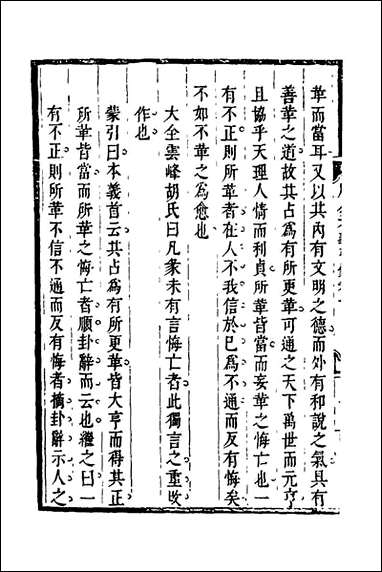 革而當耳又以其内有文明之德而外有和說之氣具有
善革之道故其占為有所更革可通之天下萬世而元亨
且協乎天理人情而利貞所革皆當而妄革之悔亡也一
有不正則所革者在人不我信於巳為不通而反有悔矣
不如不革之為愈也
大全雲峰胡氏曰凡彖未有言悔亡者此獨言之重改
作也
蒙引曰本義首云其占為有所更革皆大亨而得其正
所革皆當而所革之悔亡者順卦辭而云也繼之曰一
有不正則所革不信不通而反有悔者摘卦辭示人之